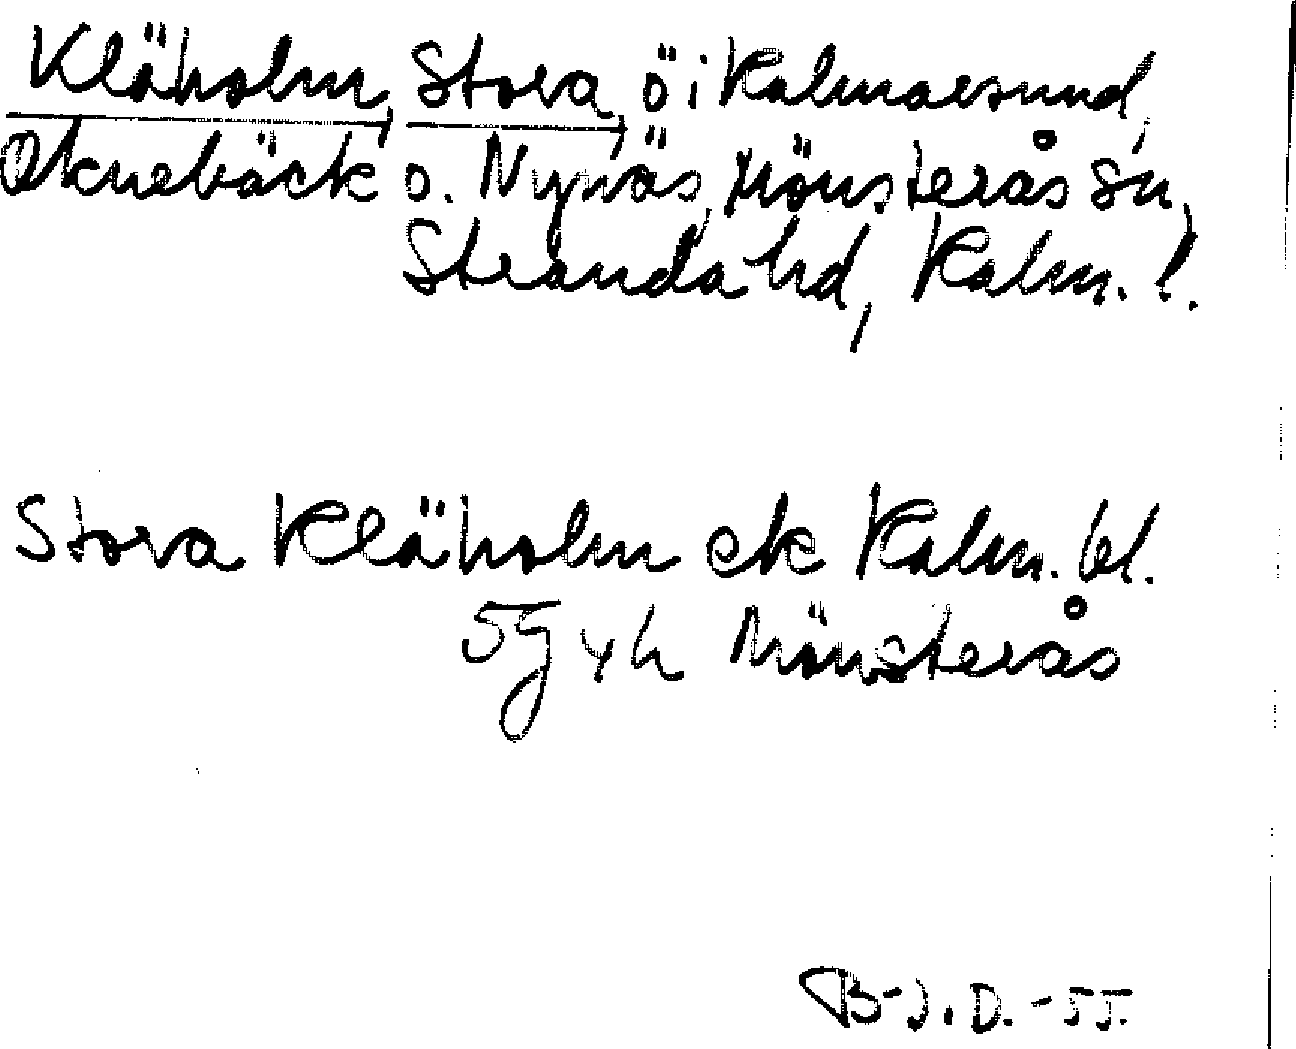 Kläholm, Stora, ö i Kalmarsund,
Oknebäck o. Nynäs, Mönsterås sn,
Stranda hd, Kalm. l.
Stora Kläholm ek Kalm. bl.
5g4h Mönsterås
B-J.D.-55.